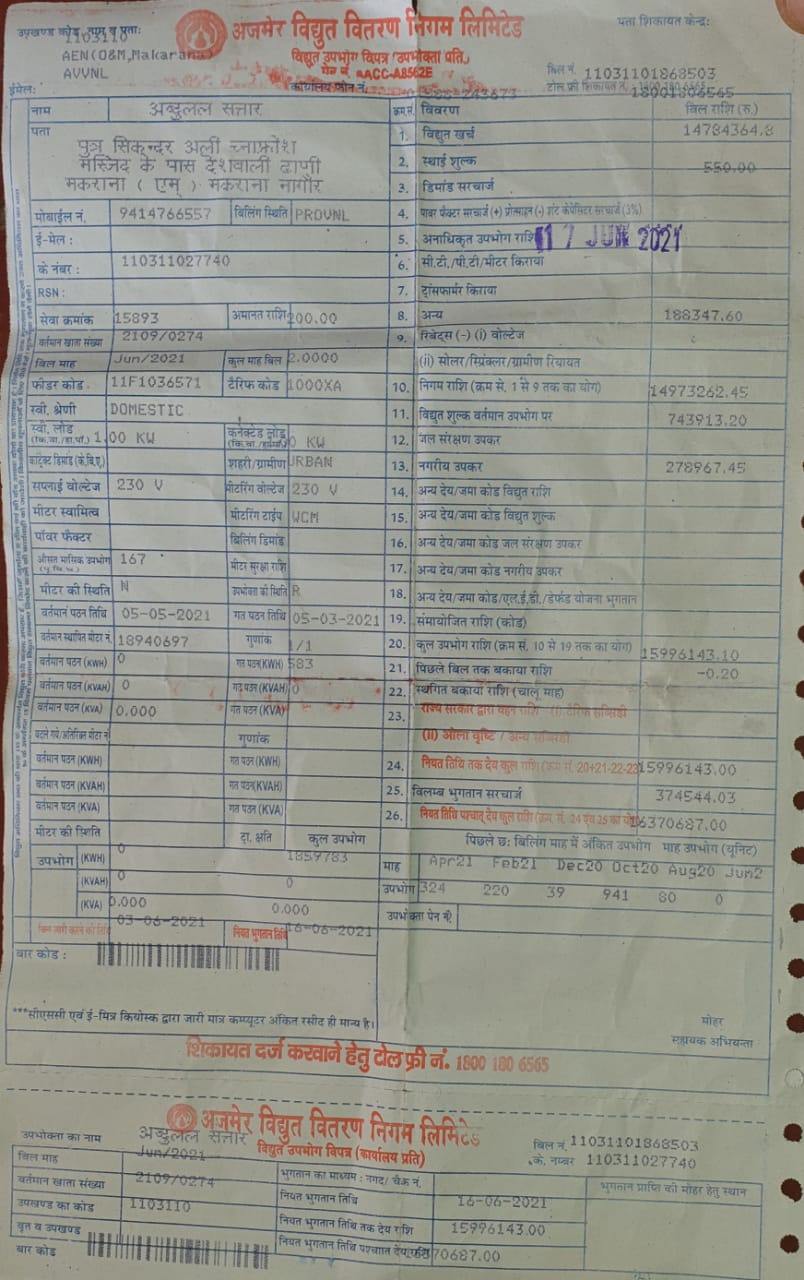 उपखण्ड कोड, नाम व पता:
1103110
अजमेर विद्युत वितरण निगम लिमिटेड
पता शिकायत केन्द्र:
AEN(O&M,Makarana)
AVVNL
विद्युत उपभोग विपत्र 'उपभोक्ता प्रति,
ACC-A8562E
बिल नं. 11031101868503
ईमेल:
कार्यालय फोन नं.
टोल फ्री शिकायत नं. 1800 180 6565
18001806565
नाम अब्दुलल सत्तार
क्रम.सं. विवरण बिल राशि (रु.)
पता
पुत्र सिकन्दर अली
मस्जिद के पास देशवाली ढाणी
मकराना ( एम् ) मकराना नागौर
1. विद्युत खर्च 14784364.8
2. स्थाई शुल्क 550.00
3. डिमांड सरचार्ज
मोबाईल नं. 9414766557 बिलिंग स्थिति PROVNL
4. पावर फैक्टर सरचार्ज (+) प्रोत्साहन (-) शंट कैपेसिटर सरचार्ज (3%)
ई-मेल :
5. अनाधिकृत उपभोग राशि
17 JUN 2021
के नंबर : 110311027740
6. सी.टी./पी.टी/मीटर किराया
RSN :
7. ट्रांसफार्मर किराया
सेवा क्रमांक 15893 अमानत राशि 200.00
8. अन्य 188347.60
वर्तमान खाता संख्या 2109/0274
9. रिबेट्स (-) (i) वोल्टेज
बिल माह Jun/2021 कुल माह बिल 2.0000
(ii) सोलर/स्प्रिंक्लर/ग्रामीण रियायत
फीडर कोड . 11F1036571 टैरिफ कोड 1000XA
10. निगम राशि (क्रम सं. 1 से 9 तक का योग) 14973262.45
स्वी. श्रेणी DOMESTIC
11. विद्युत शुल्क वर्तमान उपभोग पर 743913.20
स्वी. लोड 1.00 KW कनेक्टेड लोड 0 KW
12. जल संरक्षण उपकर
कांट्रेक्ट डिमांड (के.वि.ए.) शहरी/ग्रामीण URBAN
13. नगरीय उपकर 278967.45
सप्लाई वोल्टेज 230 V मीटरिंग वोल्टेज 230 V
14. अन्य देय/जमा कोड विद्युत राशि
मीटर स्वामित्व मीटरिंग टाईप WCM
15. अन्य देय/जमा कोड विद्युत शुल्क
पॉवर फैक्टर बिलिंग डिमांड
16. अन्य देय/जमा कोड जल संरक्षण उपकर
औसत मासिक उपभोग 167 मीटर सुरक्षा राशि
17. अन्य देय/जमा कोड नगरीय उपकर
मीटर की स्थिति N उपभोक्ता की स्थिति R
18. अन्य देय/जमा कोड/एल.ई.डी./डेफर्ड योजना भुगतान
वर्तमान पठन तिथि 05-05-2021 गत पठन तिथि 05-03-2021
19. समायोजित राशि (कोड)
वर्तमान स्थापित मीटर नं. 18940697 गुणांक 1/1
20. कुल उपभोग राशि (क्रम सं. 10 से 19 तक का योग) 15996143.10
वर्तमान पठन (KWH) 0 गत पठन(KWH) 583
21. पिछले बिल तक बकाया राशि -0.20
वर्तमान पठन (KVAH) 0 गत पठन (KVAH) 0
22. स्थगित बकाया राशि (चालू माह)
वर्तमान पठन (KVA) 0.000 गत पठन (KVA)
23. राज्य सरकार द्वारा वहन राशि (i) टैरिफ सब्सिडी
बदले गये/अतिरिक्त मीटर नं गुणांक
(ii) ओला वृष्टि / अन्य सब्सिडी
वर्तमान पठन (KWH) गत पठन (KWH)
24. नियत तिथि तक देय कुल राशि (क्रम सं. 20+21-22-23) 15996143.00
वर्तमान पठन (KVAH) गत पठन(KVAH)
25. विलम्ब भुगतान सरचार्ज 374544.03
वर्तमान पठन (KVA) गत पठन (KVA)
26. नियत तिथि पश्चात् देय कुल राशि (क्रम. सं. 24 एवं 25 का योग) 16370687.00
मीटर की स्थिति ट्रा. क्षति कुल उपभोग
पिछले छ: बिलिंग माह में अंकित उपभोग माह उपभोग (यूनिट)
उपभोग (KWH) 0 1859783
माह Apr21 Feb21 Dec20 Oct20 Aug20 Jun2
(KVAH) 0 0
उपभोग 324 220 39 941 80 0
(KVA) 0.000 0.000
उपभोक्ता पेन नं.
बिल जारी करने की तिथि 03-06-2021 नियत भुगतान तिथि 16-06-2021
बार कोड :
***सीएससी एवं ई-मित्र कियोस्क द्वारा जारी मात्र कम्प्यूटर अंकित रसीद ही मान्य है।
मोहर
सहायक अभियन्ता
शिकायत दर्ज करवाने हेतु टोल फ्री नं. 1800 180 6565
अजमेर विद्युत वितरण निगम लिमिटेड
उपभोक्ता का नाम अब्दुलल सत्तार
विद्युत उपभोग विपत्र (कार्यालय प्रति)
बिल नं. 11031101868503
के. नम्बर 110311027740
बिल माह Jun/2021
भुगतान का माध्यम : नगद/ चैक नं.
भुगतान प्राप्ति की मोहर हेतु स्थान
वर्तमान खाता संख्या 2109/0274
नियत भुगतान तिथि 16-06-2021
उपखण्ड का कोड 1103110
नियत भुगतान तिथि तक देय राशि 15996143.00
वृत व उपखण्ड
नियत भुगतान तिथि पश्चात देय राशि 16370687.00
बार कोड